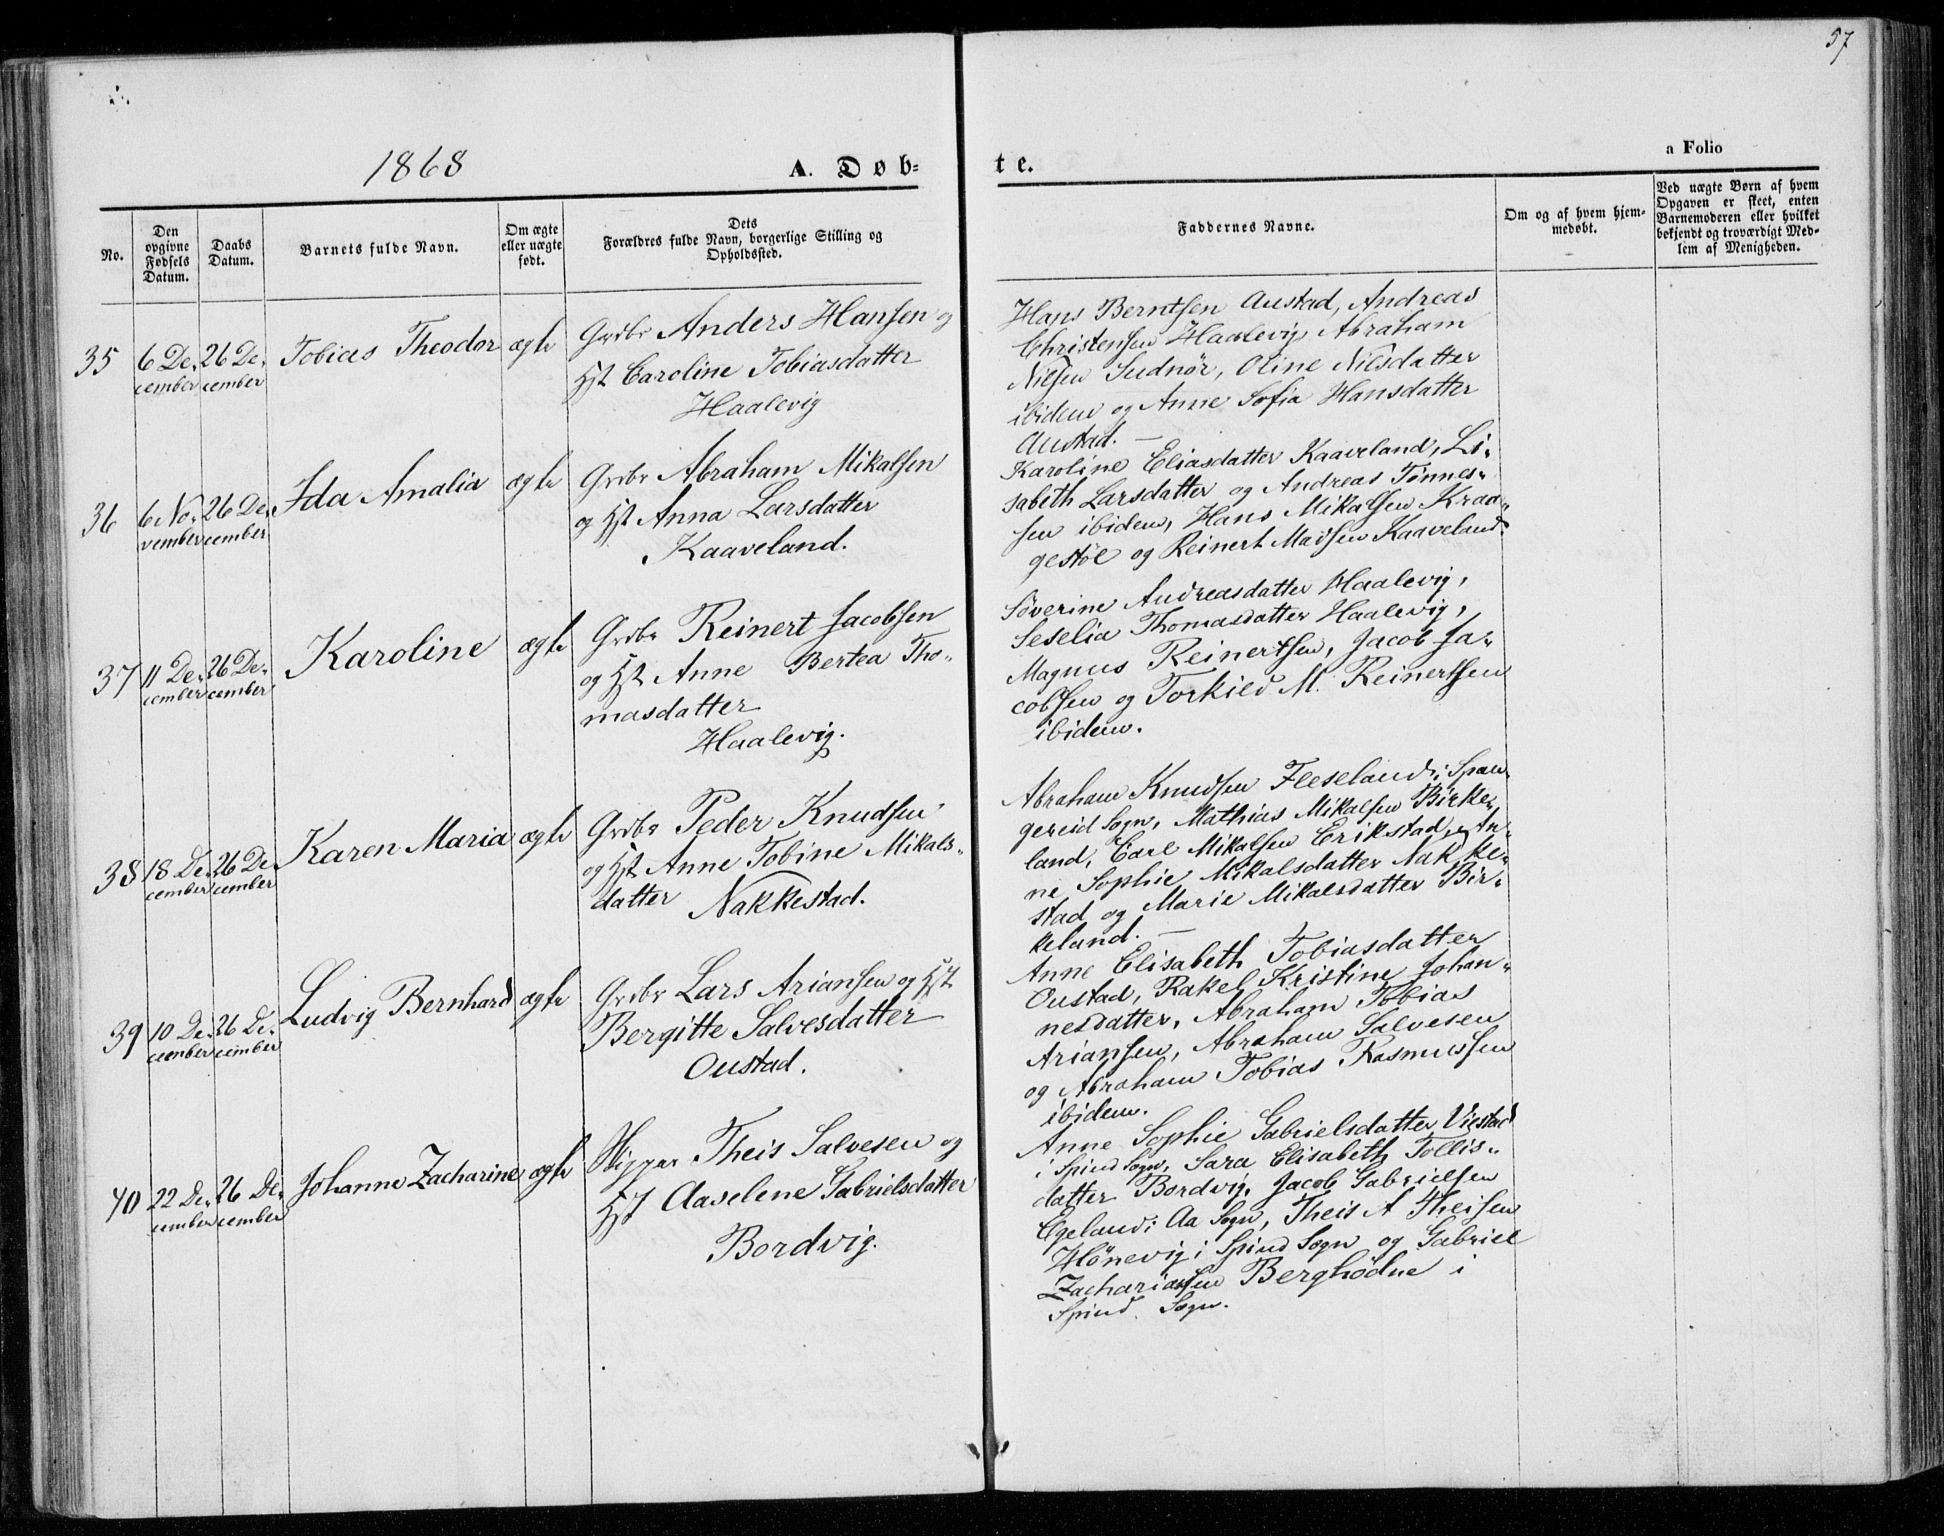 57
1868
A. Døb-
te.
a Folio
No.
Den
opgivne
Fødsels
Datum.
Daabs
Datum.
Barnets fulde Navn.
Om ægte
eller uægte
født.
Dets
Forældres fulde Navn, borgerlige Stilling og
Opholdssted.
Faddernes Navne.
Om og af hvem hjem-
medøbt.
Ved uægte Børn af hvem
Opgaven er skeet, enten
Barnemoderen eller hvilket
bekjendt og troværdigt Med-
lem af Menigheden.
35
6 De-
cember
26 De-
cember
Tobias Theodor
ægte
Grdbr Anders Hansen og
Hst Caroline Tobiasdatter
Haalevig
Hans Berntsen Austad, Andreas
Christensen Haalevig Abraham
Nilsen Sudnør, Oline Nilsdatter
ibidem og Anne Sofia Hansdatter
Austad. —
36
6 No-
vember
26 De-
cember
Ida Amalia
ægte
Grdbr Abraham Mikalsen
og Hst Anna Larsdatter
Kaaveland.
Karoline Eliasdatter Kaaveland, Li-
sabeth Larsdatter og Andreas Tønnes-
sen ibidem, Hans Mikalsen Kraa-
gestøl og Reinert Madsen Kaaveland.
37
11 De-
cember
26 De-
cember
Karoline
ægte
Grdbr Reinert Jacobsen
og Hst Anne Bertea Tho-
masdatter
Haalevig.
Søverine Andreasdatter Haalevig,
Seselia Thomasdatter Haalevig,
Magnus Reinertsen, Jacob Ja-
cobsen og Torkild M. Reinertsen
ibidem.
38
18 De-
cember
26 De-
cember
Karen Maria
ægte
Grdbr Peder Knudsen
og Hst Anne Tobine Mikals-
datter Nakkestad.
Abraham Knudsen Fleseland i Span-
gereid Sogn, Mathias Mikalsen Birke-
land, Carl Mikalsen Erikstad, An-
ne Sophie Mikalsdatter Nakke-
stad og Marie Mikalsdatter Bir-
keland. —
39
10 De-
cember
26 De-
cember
Ludvig Bernhard
ægte
Grdbr Lars Ariansen og Hst
Bergitte Salvesdatter
Oustad.
Anne Elisabeth Tobiasdatter
Oustad, Rakel Kristine Johan-
nesdatter, Abraham Tobias
Ariansen, Abraham Salvesen
og Abraham Tobias Rasmussen
ibidem.
40
22 De-
cember
26 De-
cember
Johanne Zacharine
ægte
Skipper Theis Salvesen og
Hst Aaselene Gabrielsdatter
Bordvig.
Anne Sophie Gabrielsdatter Viestad
i Spind Sogn, Sara Elisabeth Tollis-
datter Bordvig, Jacob Gabrielsen
Egeland i Aa Sogn, Theis A Theisen
Hønevig i Spind Sogn og Gabriel
Zachariasen Berghodne i
Spind Sogn.